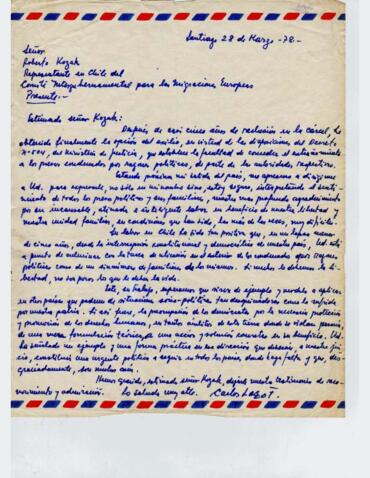 Santiago 28 de Marzo -78-
Señor
Roberto Kozak
Representante en Chile del
Comité Intergubernamental para las Migraciones Europeas
Presente.-
Estimado señor Kozak:
Después de casi cinco años de reclusión en la Cárcel, he
obtenido finalmente la opción del exilio, en virtud de las disposiciones del Decreto
N° 504, del Ministerio de Justicia, que establece la facultad de conceder el extrañamiento
a los presos condenados por razones políticas, de parte de las autoridades respectivas.
Estando próxima mi salida del país, me apresuro a dirigirme
a Ud. para expresarle, no sólo en mi nombre sino, estoy seguro, interpretando el senti-
miento de todos los presos políticos y sus familiares, nuestro más profundo agradecimiento
por su incansable, atinada e inteligente labor en beneficio de nuestra libertad y
nuestra unidad familiar, en condiciones que han sido, las más de las veces, muy difíciles.
Su labor en Chile ha sido tan positiva que, en un lapso menor
de cinco años, desde la interrupción constitucional y democrática de nuestro país, Ud. está
a punto de culminar con la tarea de ubicación en el exterior de los condenados por razones
políticas como de un sinnúmero de familiares de los mismos. Si muchos le debemos la li-
bertad, no son pocos los que le deben la vida.
Este, su trabajo, esperamos que sirva de ejemplo y modelo a aplicar
en otros países que padecen de situaciones socio-políticas tan desquiciadoras como la sufrida
por nuestra patria. Si así fuese, la preocupación de los demócratas por la necesaria protección
y promoción de los derechos humanos, en tantos ámbitos de esta tierra donde se violan, pasaría
de una mera formulación teórica a una acción y solución concretas en su beneficio. Ud.
ha señalado un ejemplo y una forma práctica en esa dirección que debería, a nuestro jui-
cio, constituir una urgente política a seguir en todos los países, donde haga falta y que, des-
graciadamente, son muchos aún.
Hemos querido, estimado señor Kozak, dejarle nuestro testimonio de reco-
nocimiento y admiración. Lo saluda muy atte. Carlos Lazo F.